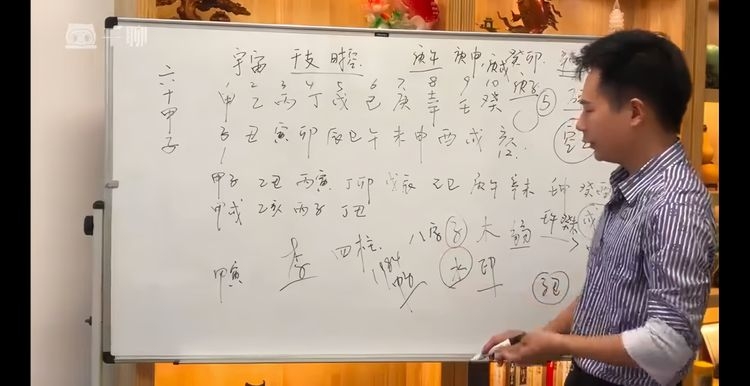 千聊
六十甲子
宇宙 干支 时空 庚午 庚申 庚戌 癸卯
1 2 3 4 5 6 7 8 9 10 庚子
甲 乙 丙 丁 戊 己 庚 辛 壬 癸 5
子 丑 寅 卯 辰 巳 午 未 申 酉 戌 亥 空
1 12
甲子 乙丑 丙寅 丁卯 戊辰 己巳 庚午 辛未 壬申 癸酉
甲戌 乙亥 丙子 丁丑 壬午 癸未 戌
四柱 八字 子 木
甲寅 1984 水 卯 子丑